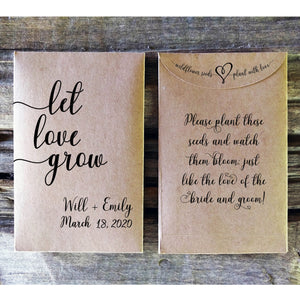 let
love
grow
Will + Emily
March 18, 2020
wildflower seeds plant with love
Please plant these
seeds and watch
them bloom; just
like the love of the
bride and groom!